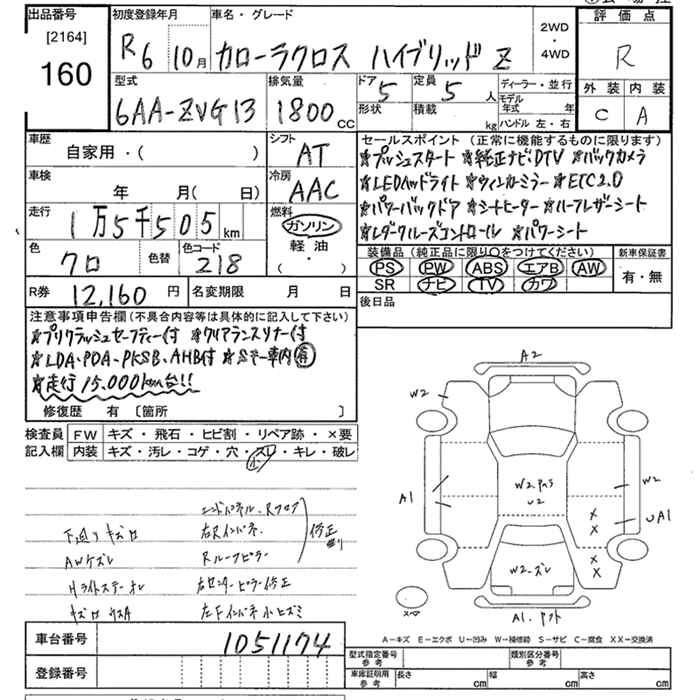 出品番号
[2164]
160
初度登録年月
R6 10月
車名・グレード
カローラクロス ハイブリッド Z
2WD
・
4WD
評価点
R
外装 内装
C A
型式
6AA-ZVG13
排気量
1800 CC
ドア
5
定員
5 人
形状
積載
kg
ディーラー・並行
モデル年式 年
ハンドル 左・右
車歴
自家用・( )
シフト
AT
車検
年 月( 日)
冷房
AAC
走行
1万5千505 km
燃料
ガソリン
軽油
( ・ )
色
クロ
色替
色コード
218
R券 12,160 円
名変期限 月 日
セールスポイント (正常に機能するものに限ります)
★プッシュスタート ★純正ナビ・DTV ★バックカメラ
★LEDヘッドライト ★ウィンカーミラー ★ETC2.0
★パワーバックドア ★シートヒーター ★ハーフレザーシート
★レーダークルーズコントロール ★パワーシート
装備品 (純正品に限り〇をつけてください)
PS PW ABS エアB AW
SR ナビ TV カワ
新車保証書
有・無
後日品
注意事項申告欄 (不具合内容等は具体的に記入して下さい)
★プリクラッシュセーフティー付 ★クリアランスソナー付
★LDA・PDA・PKSB・AHB付 ★Sキー車内有
★走行15,000km台!!
修復歴 有 〔箇所 〕
検査員記入欄
FW キズ・飛石・ヒビ割・リペア跡・×要
内装 キズ・汚レ・コゲ・穴・スレ・キレ・破レ
小
エンドパネル・Rフロア
下廻りキズ
右Rインパネ・
修正
AWキズレ
Rルーフピラー
Hライトステー
右センターピラー修正
左Fインパネ小ヒズミ
A2
W2
A1
W2
W2
W2
UA1
×
×
×
×
W2・ズレ
スペア
A1.
A-キズ E-エクボ U-凹み W-補修跡 S-サビ C-腐食 XX-交換済
車台番号 1051174
登録番号
型式指定番号 参考
類別区分番号 参考
車庫証明用 参考
長さ cm
幅 cm
高さ cm